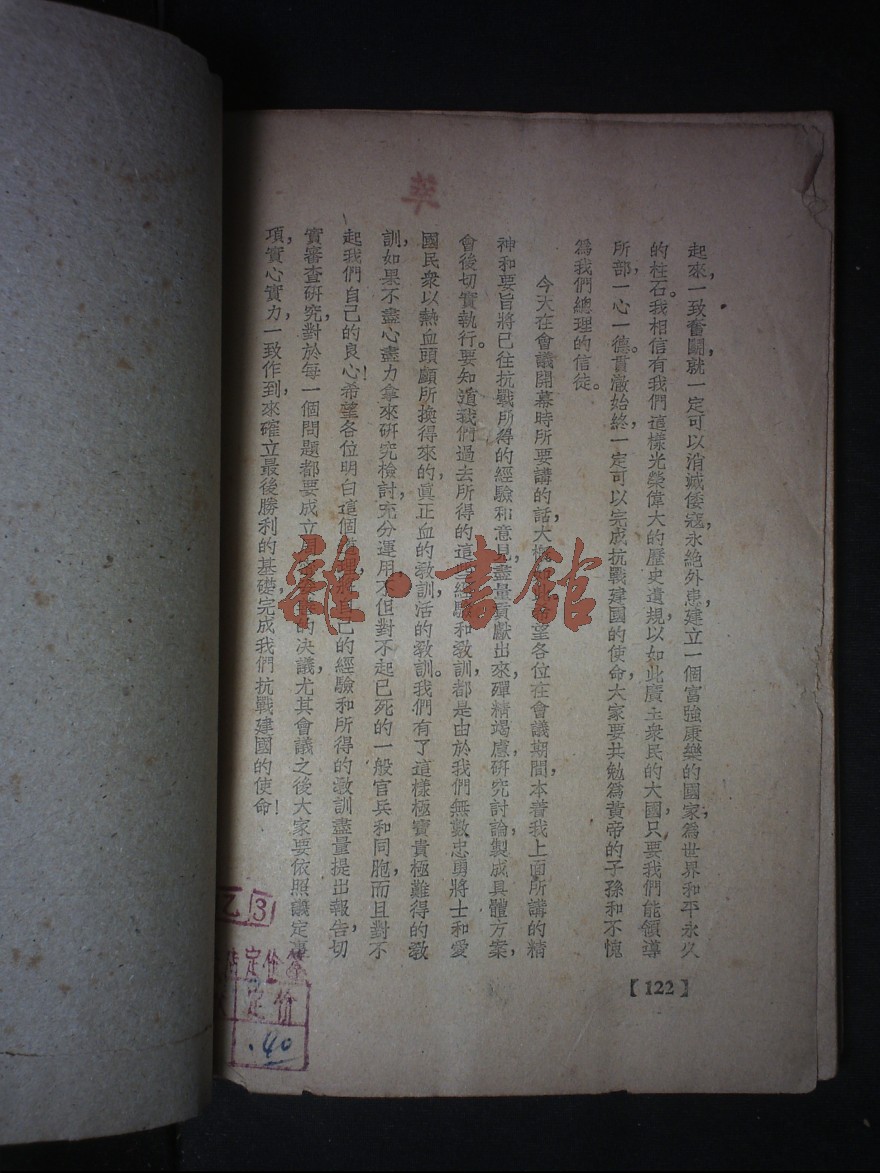 起來，一致奮鬭，就一定可以消滅倭寇，永絕外患，建立一個富強康樂的國家，爲世界和平永久
的柱石。我相信有我們這樣光榮偉大的歷史遺規，以如此廣土衆民的大國，只要我們能領導
所部，一心一德，貫澈始終，一定可以完成抗戰建國的使命，大家要共勉爲黃帝的子孫和不愧
爲我們總理的信徒。
今天在會議開幕時所要講的話，大槪望各位在會議期間，本着我上面所講的精
神和要旨，將已往抗戰所得的經驗和意見，盡量貢獻出來，殫精竭慮，研究討論，製成具體方案，
會後切實執行。要知道我們過去所得的這經驗和敎訓，都是由於我們無數忠勇將士和愛
國民衆以熱血頭顱所換得來的，眞正血的敎訓，活的敎訓。我們有了這樣極寶貴極難得的敎
訓，如果不盡心盡力拿來研究檢討，充分運用，不但對不起已死的一般官兵和同胞，而且對不
起我們自己的良心！希望各位明白這個己的經驗和所得的敎訓，盡量提出報告，切
實審查研究，對於每一個問題，都要成立的決議，尤其會議之後，大家要依照議定事
項，實心實力，一致作到，來確立最後勝利的基礎，完成我們抗戰建國的使命！
【122】
雜·書館
乙 3
定价
.40